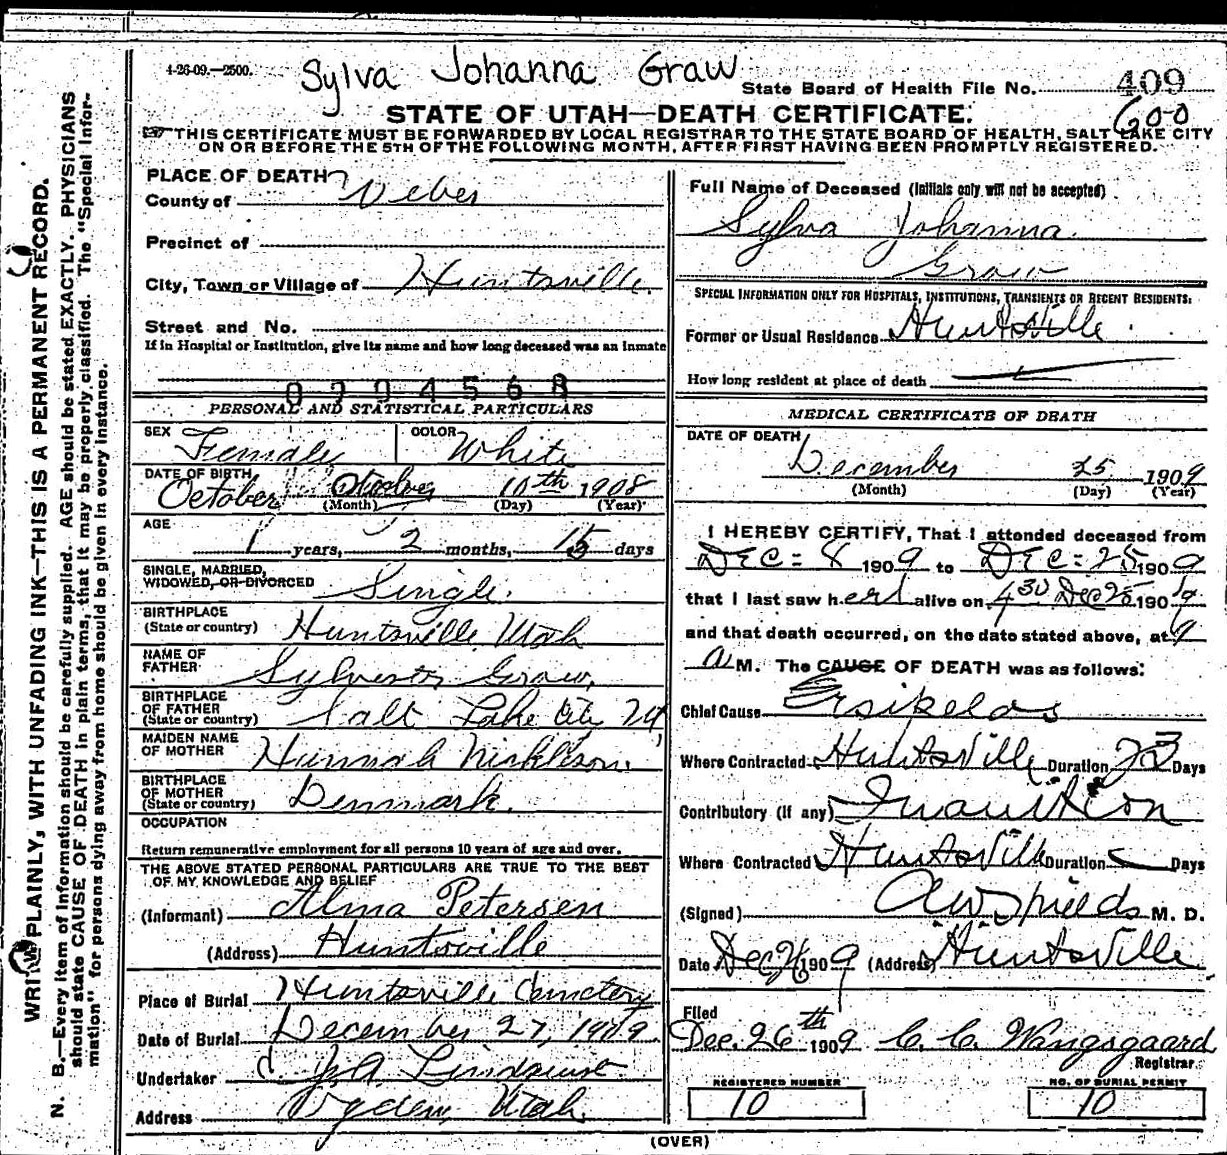 4-26-09.—2500.
Sylva Johanna Graw
State Board of Health File No. 409
600
STATE OF UTAH—DEATH CERTIFICATE.
THIS CERTIFICATE MUST BE FORWARDED BY LOCAL REGISTRAR TO THE STATE BOARD OF HEALTH, SALT LAKE CITY
ON OR BEFORE THE 5TH OF THE FOLLOWING MONTH, AFTER FIRST HAVING BEEN PROMPTLY REGISTERED.
WRITE PLAINLY, WITH UNFADING INK—THIS IS A PERMANENT RECORD.
N. B.—Every item of information should be carefully supplied. AGE should be stated EXACTLY. PHYSICIANS
should state CAUSE OF DEATH in plain terms, that it may be properly classified. The "Special Infor-
mation" for persons dying away from home should be given in every instance.
PLACE OF DEATH
County of Weber
Precinct of
City, Town or Village of Huntsville.
Street and No.
If in Hospital or Institution, give its name and how long deceased was an inmate
0294568
PERSONAL AND STATISTICAL PARTICULARS
SEX Female COLOR White
DATE OF BIRTH October October 10th 1908
(Month) (Day) (Year)
AGE 1 years, 2 months, 15 days
SINGLE, MARRIED,
WIDOWED, OR DIVORCED Single.
BIRTHPLACE
(State or country) Huntsville, Utah
NAME OF
FATHER Sylvester Graw,
BIRTHPLACE
OF FATHER
(State or country) Salt Lake City
MAIDEN NAME
OF MOTHER Hannah
BIRTHPLACE
OF MOTHER
(State or country) Denmark.
OCCUPATION
Return remunerative employment for all persons 10 years of age and over.
THE ABOVE STATED PERSONAL PARTICULARS ARE TRUE TO THE BEST
OF MY KNOWLEDGE AND BELIEF
(Informant) Alma Petersen
(Address) Huntsville
Place of Burial Huntsville Cemetery
Date of Burial December 27, 1909.
Undertaker C. J. A. Lindquist
Address Ogden, Utah
Full Name of Deceased (Initials only will not be accepted)
Sylva Johanna.
Graw
SPECIAL INFORMATION ONLY FOR HOSPITALS, INSTITUTIONS, TRANSIENTS OR RECENT RESIDENTS:
Former or Usual Residence Huntsville
How long resident at place of death
MEDICAL CERTIFICATE OF DEATH
DATE OF DEATH
December 25 1909
(Month) (Day) (Year)
I HEREBY CERTIFY, That I attended deceased from
DEC = 8 1909 to DEC = 25 1909
that I last saw her alive on 4 30 Dec 25 1909
and that death occurred, on the date stated above, at 9
a M. The CAUSE OF DEATH was as follows:
Chief Cause Ersipelas
Where Contracted Huntsville Duration 23 Days
Contributory (if any) Inanition
Where Contracted Huntsville Duration Days
(Signed) M. D.
Date Dec 26 1909 (Address) Huntsville
Filed
Dec. 26th 1909 C. C. Wangsgaard
Registrar
REGISTERED NUMBER
10
NO. OF BURIAL PERMIT
10
(OVER)